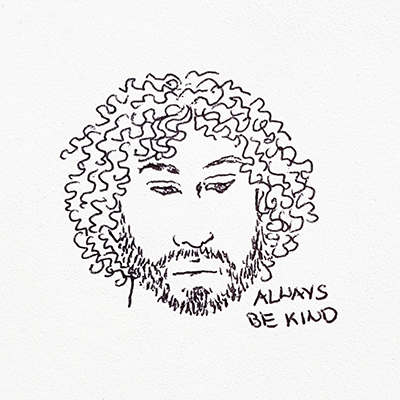 ALWAYS
BE KIND